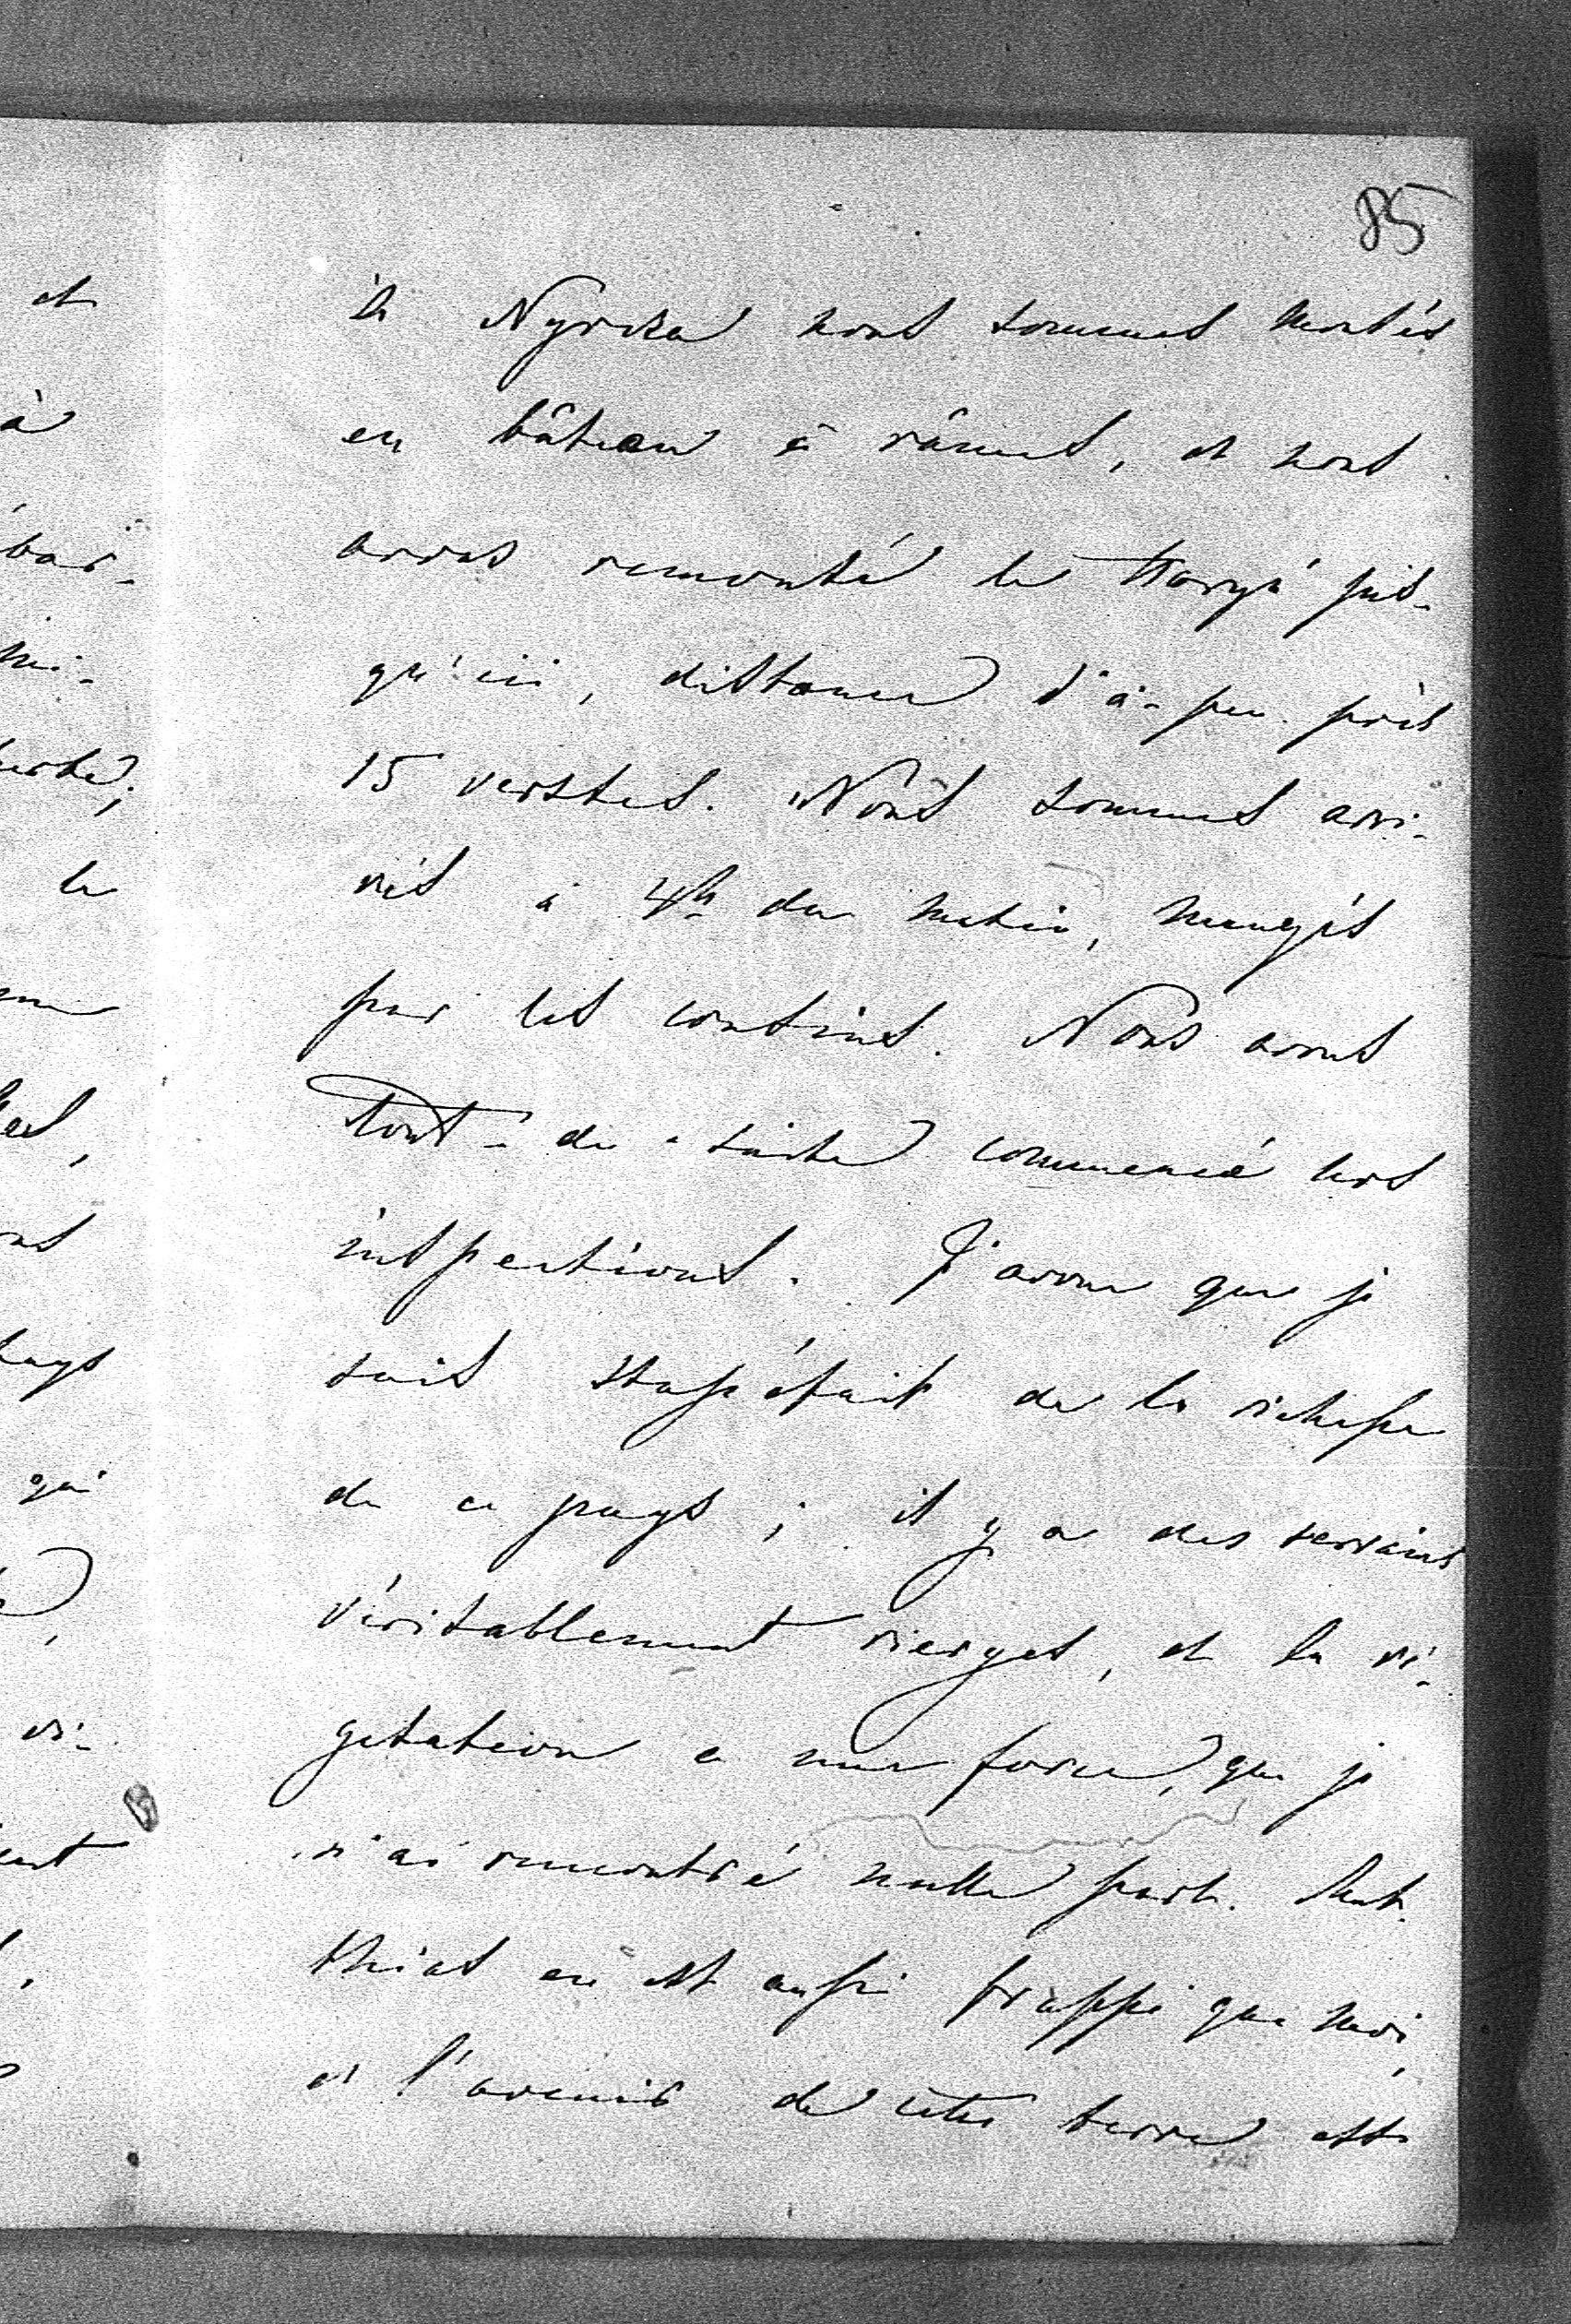 85
à Nyroka nous sommes montés
en bâteau à râmes, et nous
avons remonté le jus-
qu'ici, distance d'à-peu-près
15 verstes. Nous sommes arri-
vés à 4h du matin, mangés
par les cousins. Nous avons
tout-de-suite commencé nos
inspections. J'avoue que je
suis stupéfait de la richesse
de ce pays; il y a des terrains
véritablement vierges, et la vé-
getation a une force, que je
n'ai rencontré nulle part. Mat-
thias en est aussi frappé que moi,
et l'avenir de cette terre est
et
à
bar-
mi-
le
qui
vi-